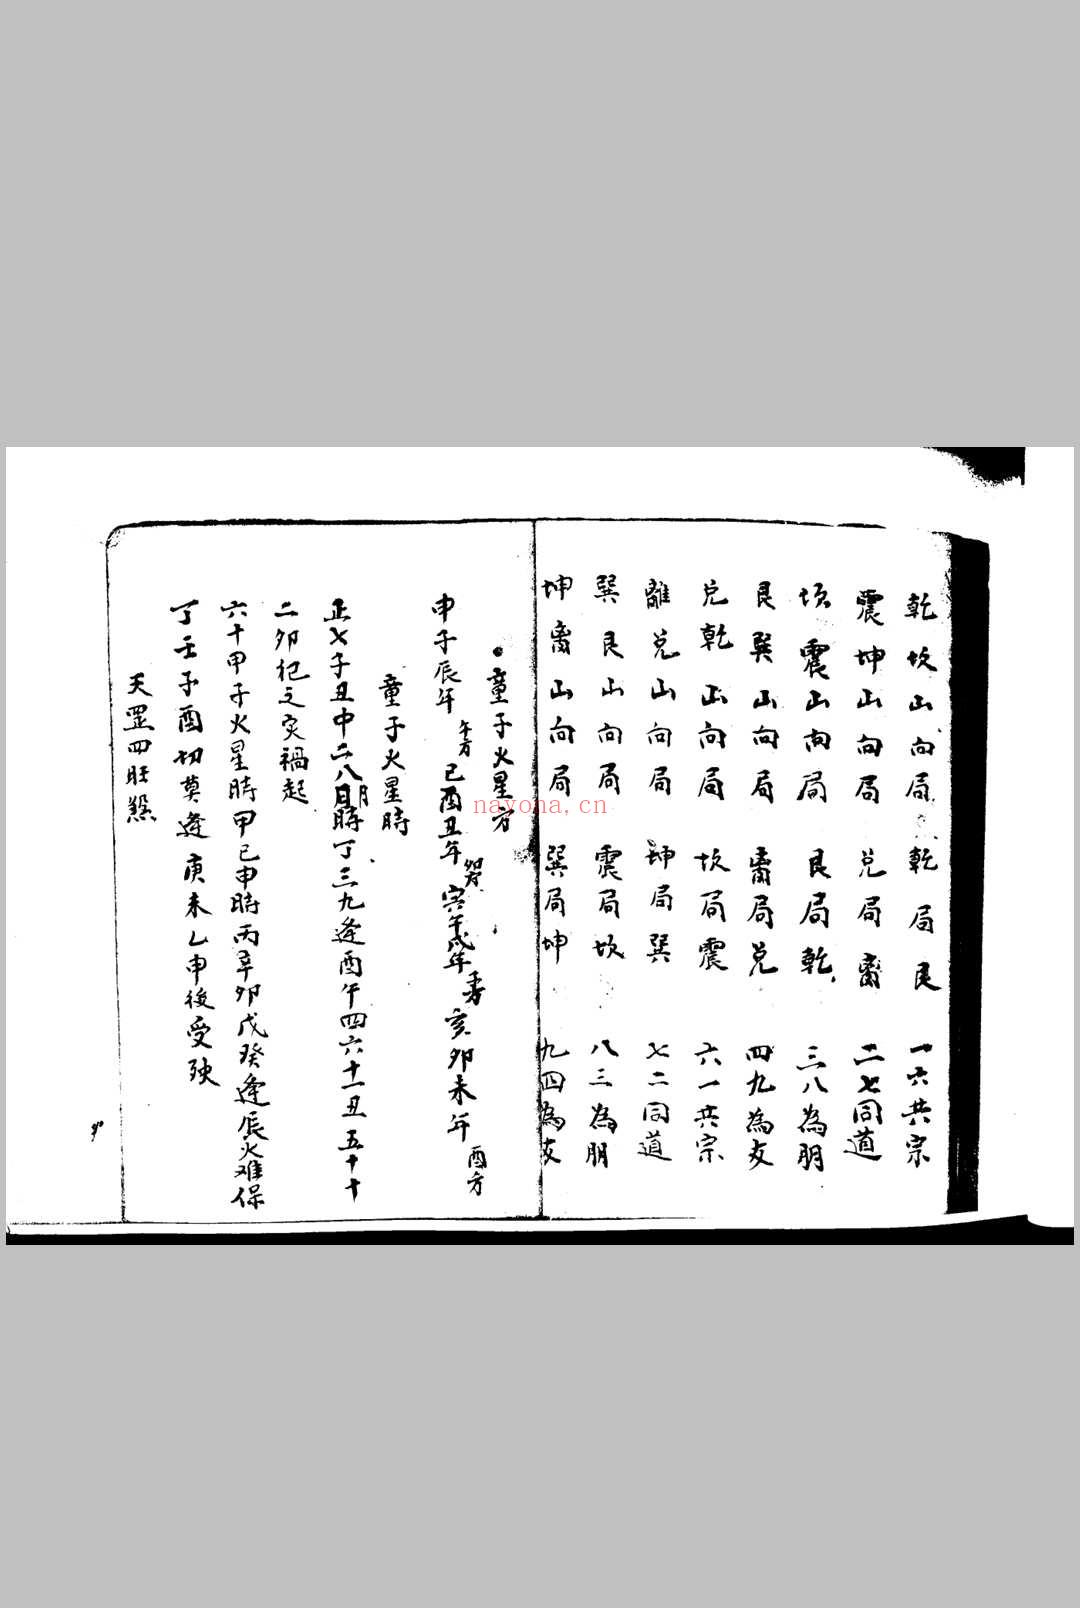 乾坎山向局　乾局艮　一六共宗
震坤山向局　兑局离　二七同道
坎震山向局　艮局乾　三八為朋
艮巽山向局　离局兑　四九為友
兑乾山向局　坎局震　六一共宗
離兑山向局　坤局巽　七二同道
巽艮山向局　震局坎　八三為朋
坤离山向局　巽局坤　九四為友
童子火星方
申子辰年 午方 巳酉丑年 卯方 寅午戌年 子方 亥卯未年 酉方
童子火星時
正七子丑中二八月時丁三九逢酉午四六十一丑五十十
二卯犯之灾禍起
六十甲子火星時甲己申時丙辛卯戊癸逢辰火难保
丁壬子酉切莫逢庚未乙申後受殃
天罡四旺煞
nayona.cn